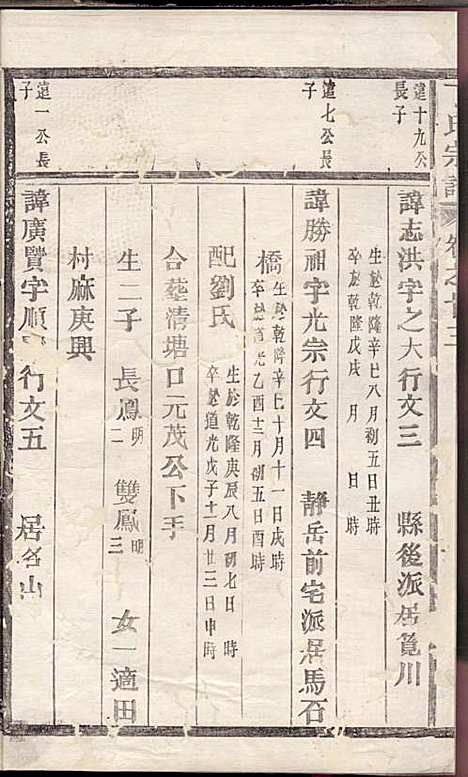 氏宗譜 卷之廿三
遠十九公
長子
諱志洪字之大行文三 縣後派居覓川
生於乾隆辛巳八月初五日丑時
卒於乾隆戊戌 月 日 時
遠七公長
子
諱勝祖字光宗行文四 靜岳前宅派居馬石
橋
生於乾隆辛巳十月十一日戌時
卒於道光乙酉十二月初五日酉時
配劉氏
生於乾隆庚辰八月初七日 時
卒於道光戊子十一月廿三日申時
合塟清塘口元茂公下手
生二子 長鳳明二 雙鳳明三 女一適田
村麻庚興
遠一公長
子
諱廣賢字順 行文五 居名山